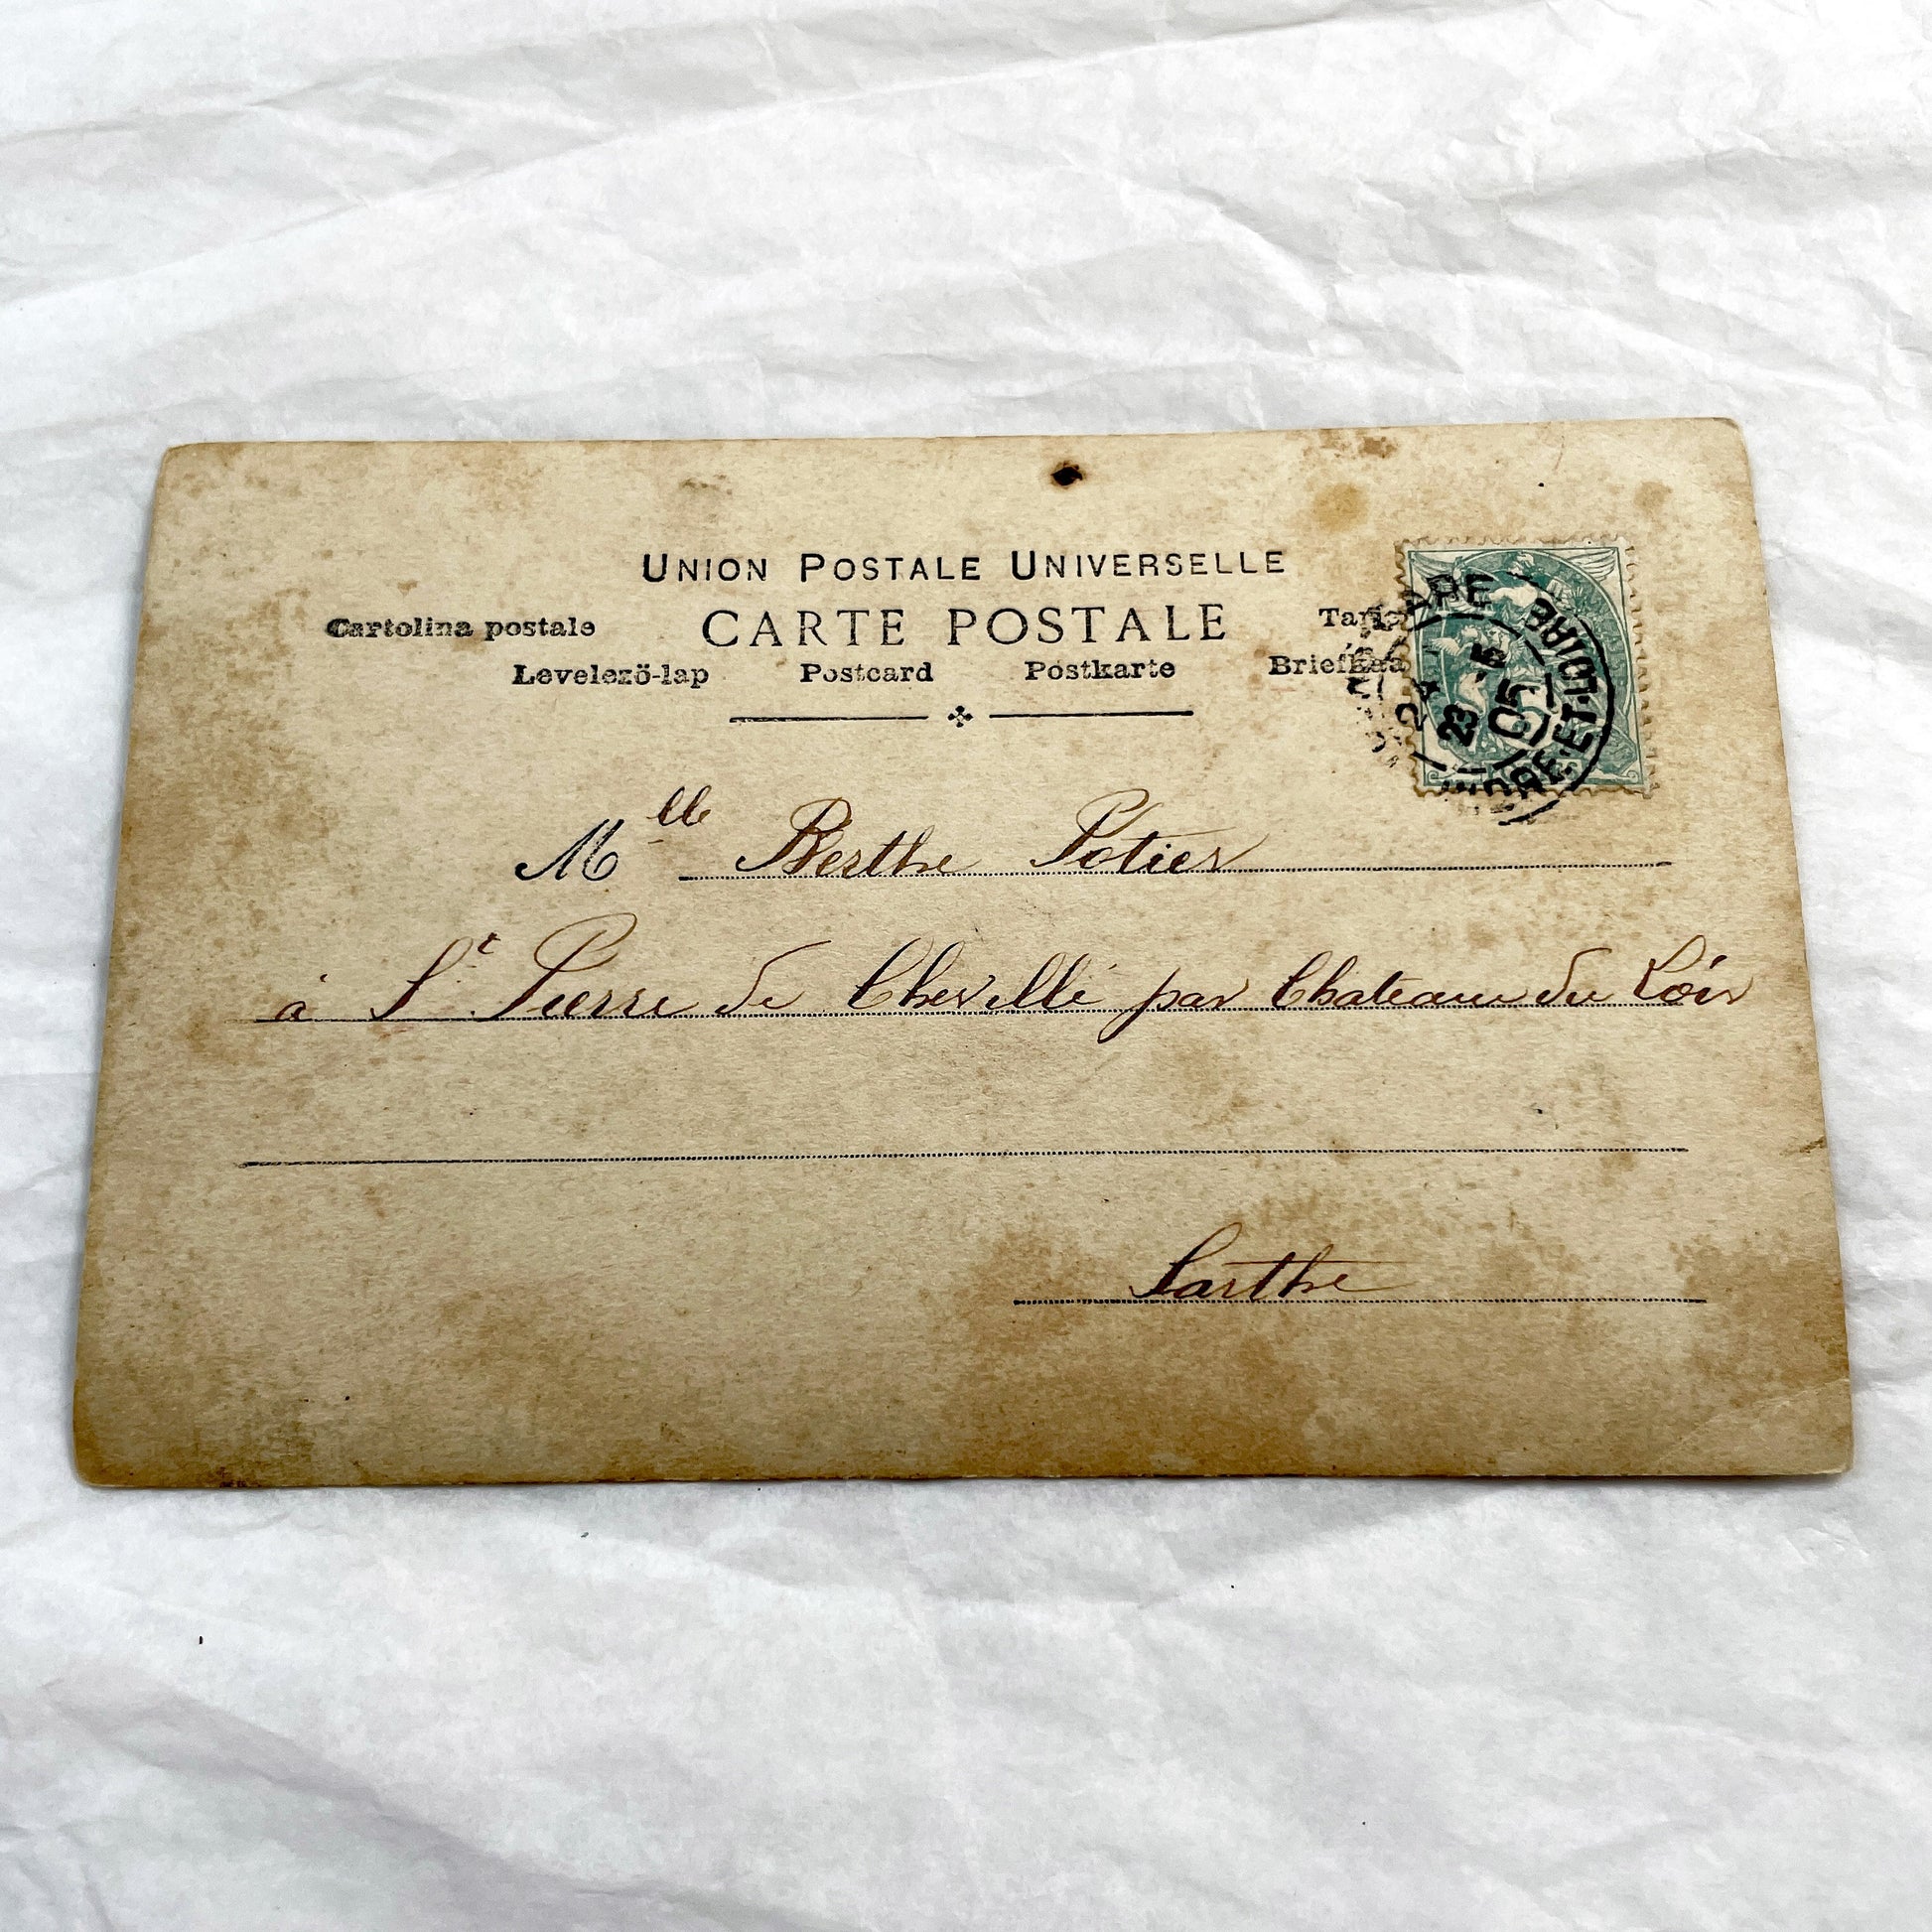 UNION POSTALE UNIVERSELLE
Cartolina postale CARTE POSTALE
Levelező-lap Postcard Postkarte
23 05
INDRE-ET-LOIRE
Mlle Berthe Potier
à St Pierre de Chevillé par Chateau du Loir
Sarthe